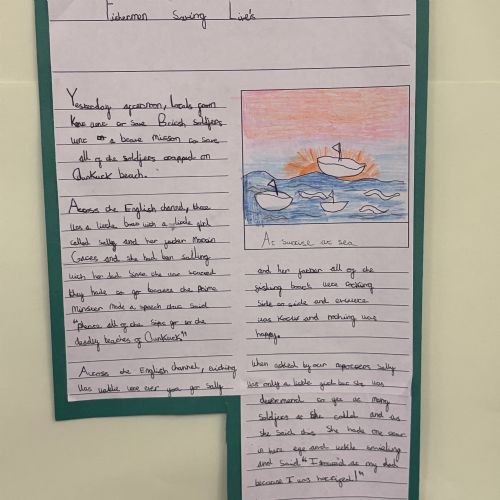 Fishermen Saving Live's
Yesterday afternoon, Locals from
Kent went to save British soldiers
went on a brave misson to save
all of the soldiers trapped on
Dunkurk beach.
Across the English channel, there
was a little boat with a little girl
called Sally and her father
and she had been sailling
with her dad since she was
they hade to go because the prime
Minister made a speech that said
"please all of the ships go to the
deadly beaches of Dunkurk"
Across the English channel,
was were ever you go Sally
At sunrise at sea
and her father all of the
fishing boats were rocking
side to side and
was and nothing was
happy.
When asked by our reporters Sally
was only a little girl but she was
determand to get as many
soldiers as she could and as
she said this She hade one tear
in here eye and
and said "I at my dad
because I was horrified!"